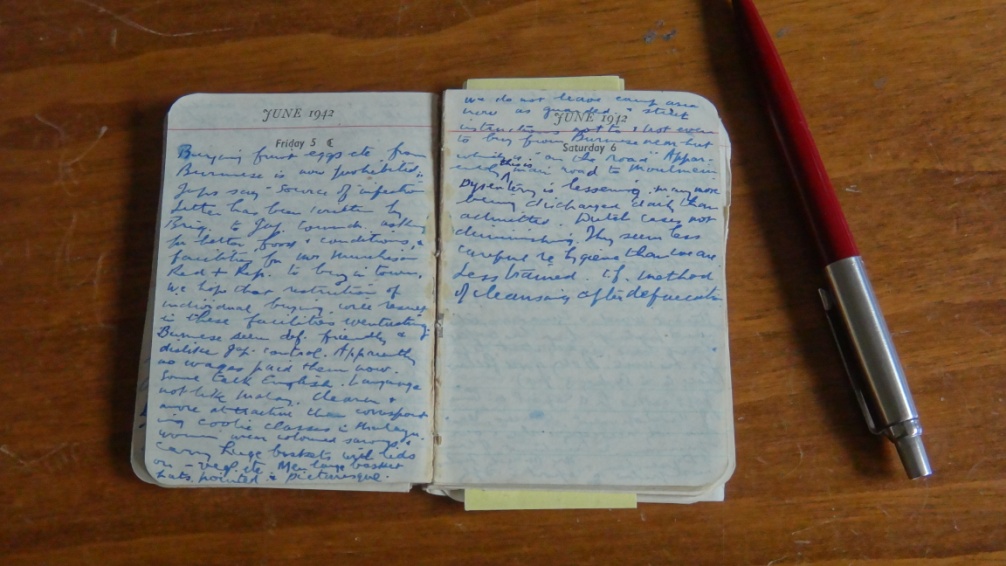 JUNE 1942
Friday 5 ☾
Buying fruit eggs etc from
Burmese is now prohibited.
Japs say - source of infection
Letter has been written by
Brig. to Jap. comm. asking
for better food & conditions, &
facilities for
Red + Rep. to buy in town.
We hope that restriction of
individual buying will
in these facilities eventuating
Burmese seem def. friendly &
dislike Jap. control. Apparently
no wages paid them now.
Some talk English. Language
not like Malay. Cleaner &
more attractive than correspond
ing coolie classes in Malaya.
women wear coloured sarongs
carry huge baskets with lids
on - veg. etc. Men large basket
hats, pointed & picturesque.
we do not leave camp area
now as guarded & strict
JUNE 1942
instructions not to & not even
to buy from Burmese near hut
Saturday 6
which is on the road. Appar-
ently this is main road to Moulmein
Dysentery is lessening. many more
being discharged daily than
admitted. Dutch cases not
diminishing. They seem less
careful re hygiene than we are.
Less trained. c.f. method
of cleansing after defaecation